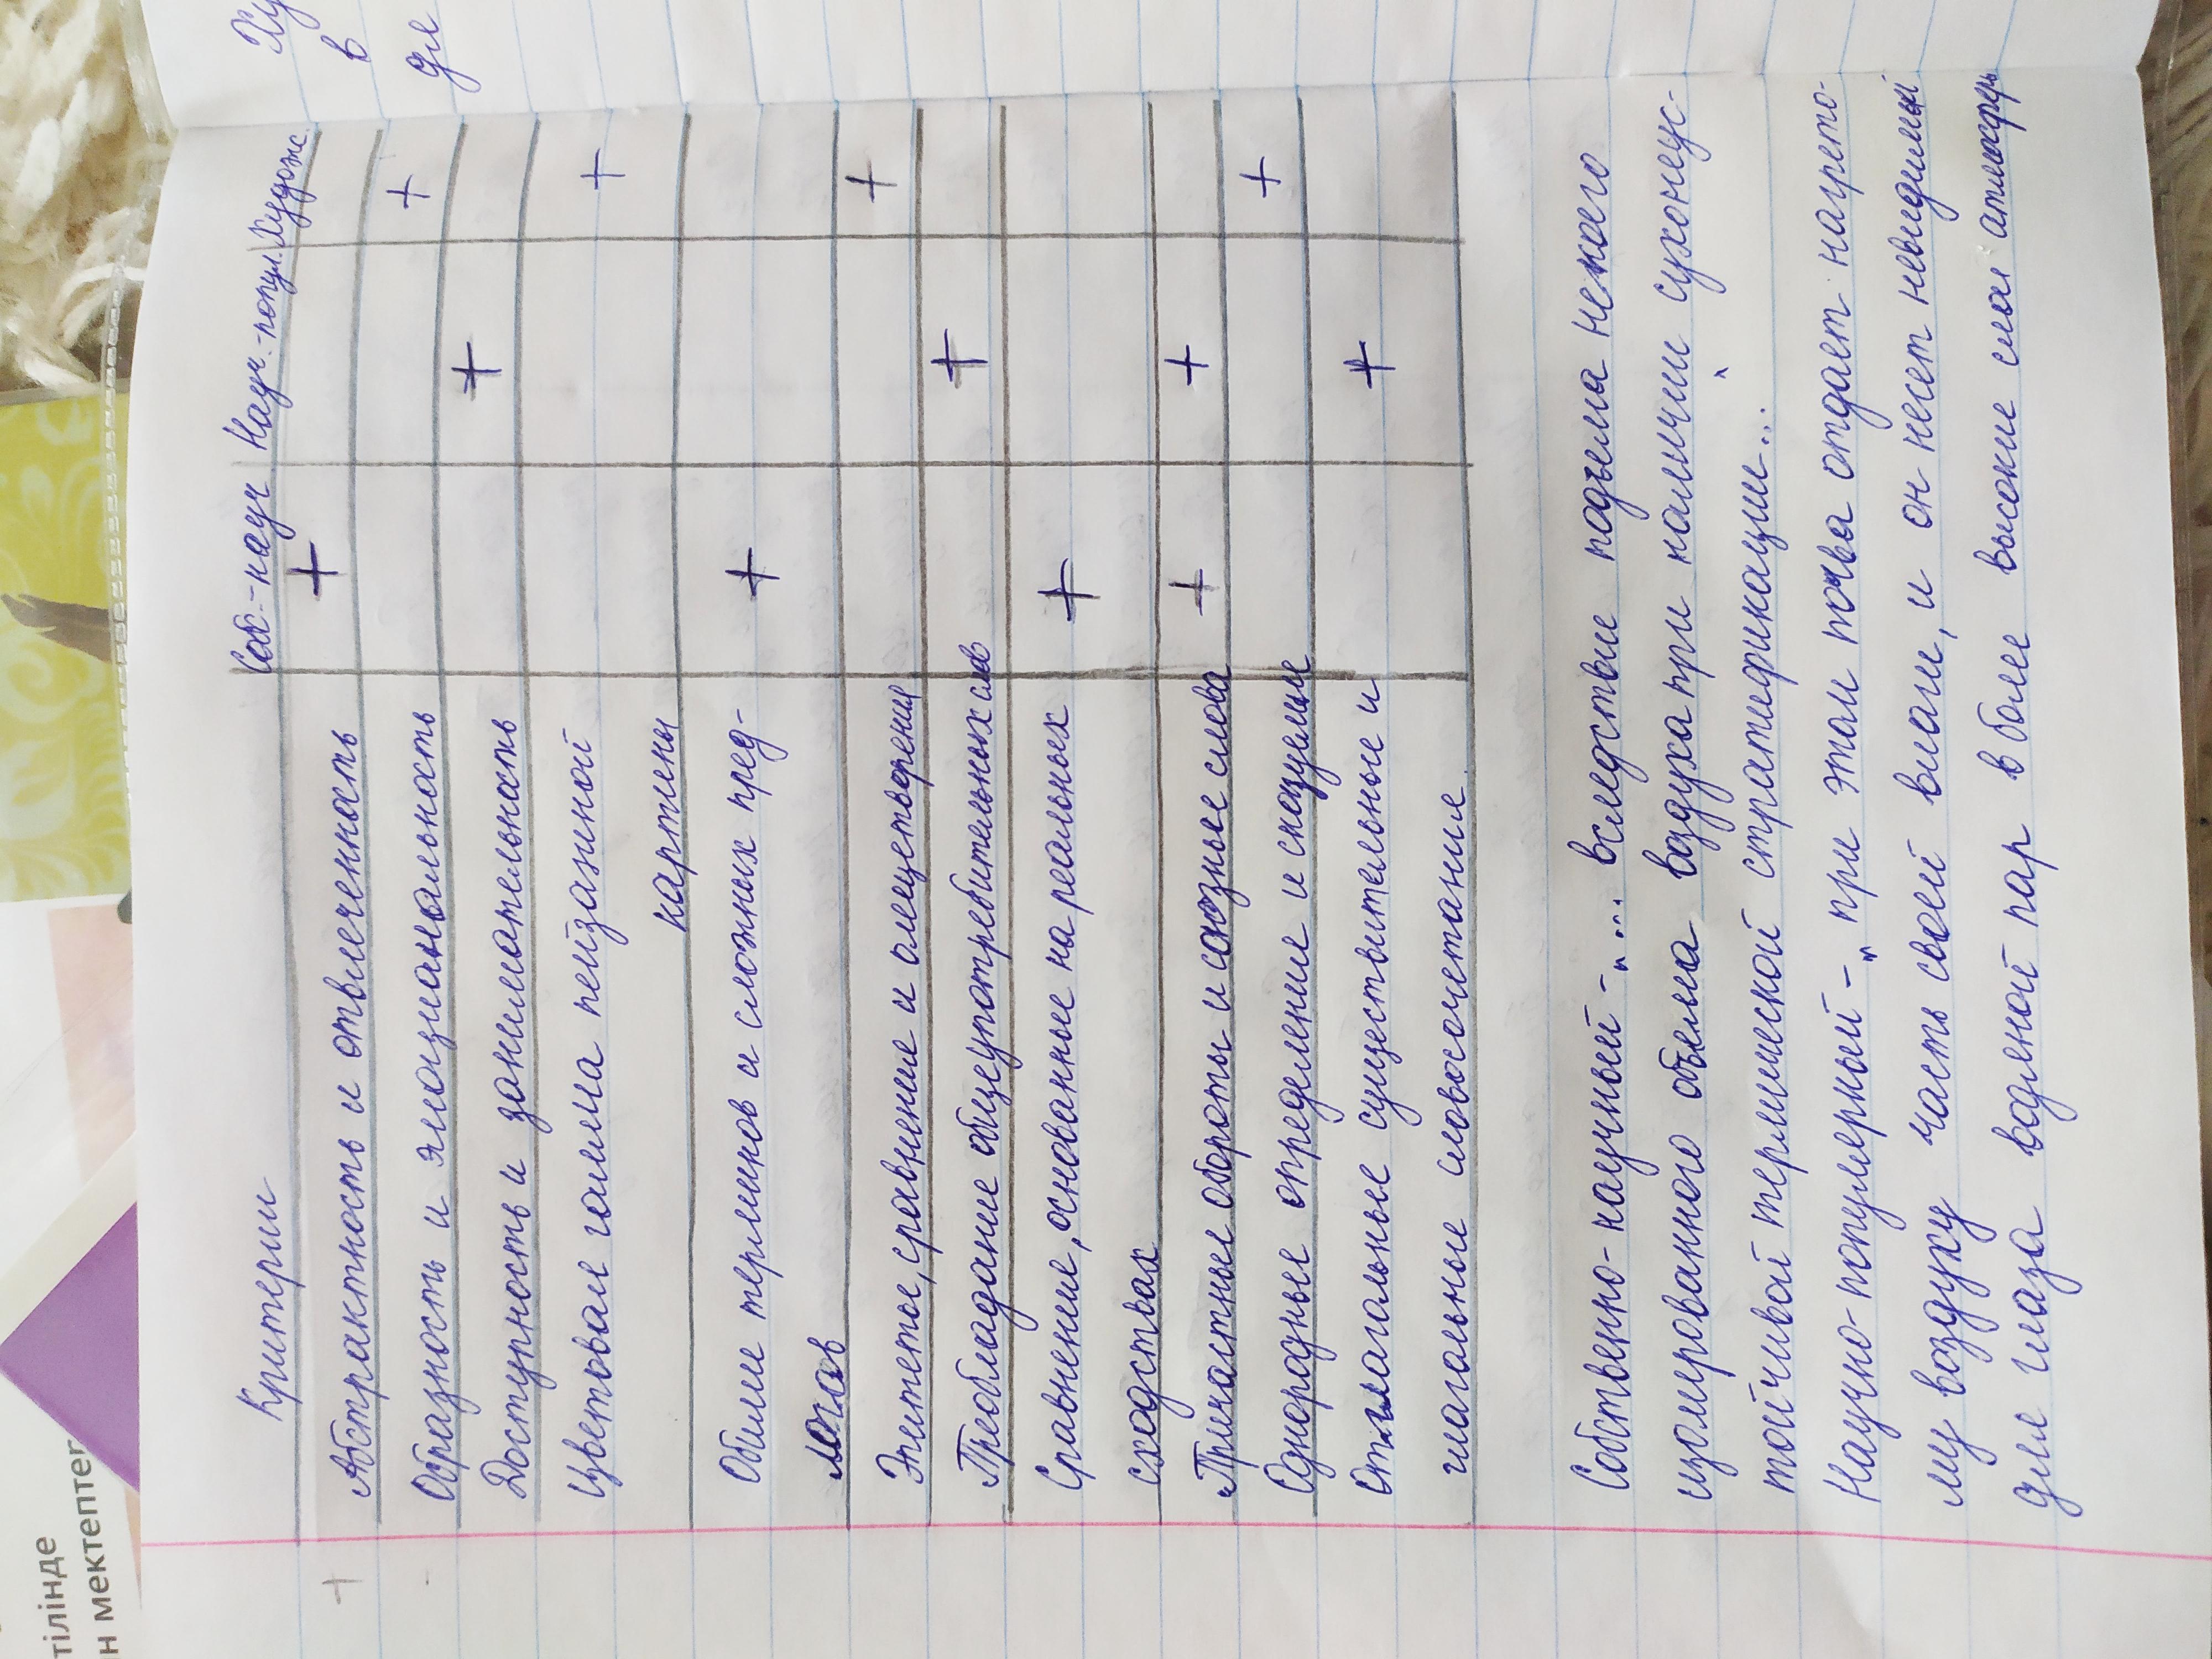 Критерии Соб.-науч Науч.-попул. Художе.
Абстрактность и отвлеченность +
Образность и эмоциональность +
Доступность и занимательность +
Цветовая гамма пейзажной +
картины
Обилие терминов и сложных пред- +
логов
Эпитеты, сравнение и олицетворения +
Преобладание общеупотребительных слов +
Сравнение, основанные на реальных +
сходствах
Причастные обороты и союзные слова + +
Однородные определение и сказуемые +
Отглагольные существительные и +
глагольные словосочетание.
Собственно-научный - „... вследствие подъема некого
изолированного объема воздуха при наличии сухонеус-
тойчивой термической стратификации...“
Научно-популярный - „при этом почва отдает нагрето-
му воздуху часть своей влаги, и он несет невидимый
для глаза водяной пар в более высокие слои атмосферы
Ху
в
дл
тілінде
н мектептег